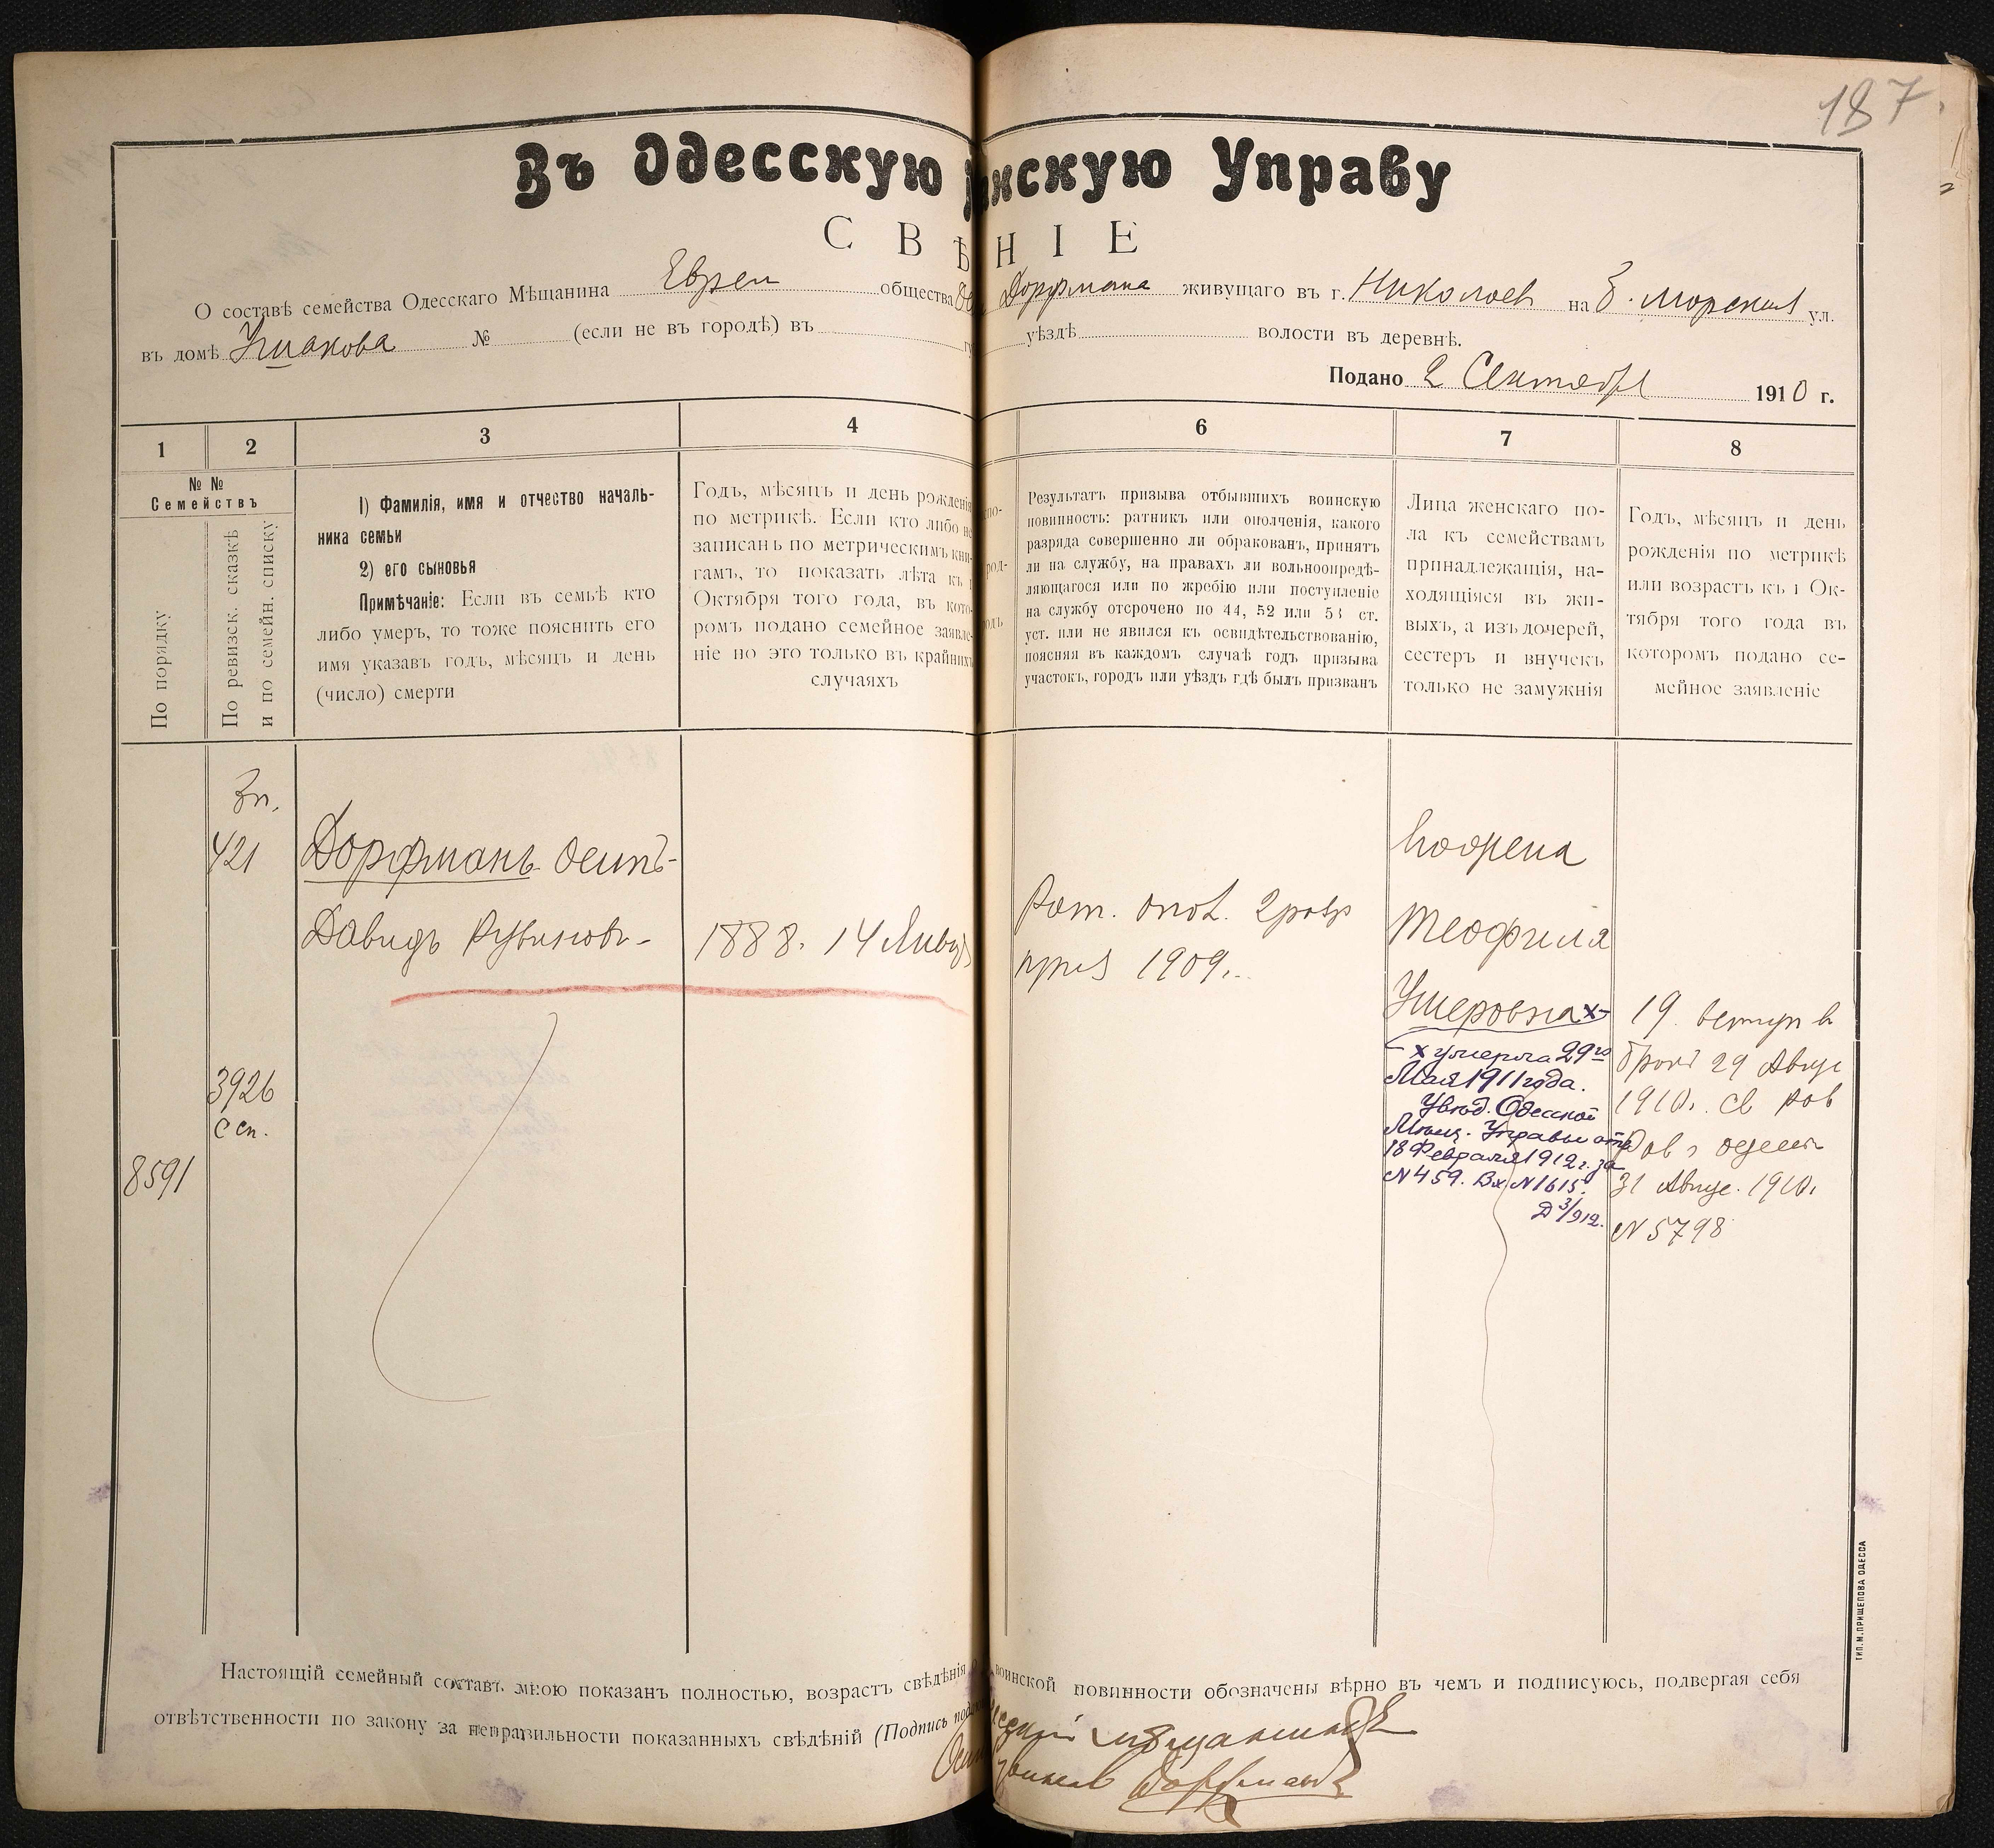 187.
Въ Одесскую нскую Управу
СВѢНІЕ
О составѣ семейства Одесскаго Мѣщанина Евреи общества Дорфмана живущаго въ г. Николаев на Б. Морская ул.
въ домѣ Ушакова № (если не въ городѣ) въ уѣздѣ волости въ деревнѣ.
Подано 2 Сентября 1910 г.
1 2 3 4 6 7 8
№ №
Семействъ
По порядку
По ревизск. сказкѣ
и по семейн. списку
1) Фамилія, имя и отчество началь-
ника семьи
2) его сыновья
Примѣчаніе: Если въ семьѣ кто
либо умеръ, то тоже пояснить его
имя указавъ годъ, мѣсяцъ и день
(число) смерти
Годъ, мѣсяцъ и день рожденія
по метрикѣ. Если кто либо не
записанъ по метрическимъ кни-
гамъ, то показать лѣта къ 1
Октября того года, въ кото-
ромъ подано семейное заявле-
ніе но это только въ крайнихъ
случаяхъ
Результатъ призыва отбывшихъ воинскую
повинность: ратникъ или ополченія, какого
разряда совершенно ли обракованъ, принятъ
ли на службу, на правахъ ли вольноопредѣ-
ляющагося или по жребію или поступленіе
на службу отсрочено по 44, 52 или 53 ст.
уст. или не явился къ освидѣтельствованію,
поясняя въ каждомъ случаѣ годъ призыва
участокъ, городъ или уѣздъ гдѣ былъ призванъ
Лица женскаго по-
ла къ семействамъ
принадлежащія, на-
ходящіяся въ жи-
выхъ, а изъ дочерей,
сестеръ и внучекъ
только не замужнія
Годъ, мѣсяцъ и день
рожденія по метрикѣ
или возрастъ къ 1 Ок-
тября того года въ
которомъ подано се-
мейное заявленіе
Зп.
421
3926
с сп.
8591
Дорфманъ Осипъ-
Давидъ Рувинов-
1888. 14 Янвр
Рат. опол. 2 разр
приз 1909.
Теофиля
Ушеровна х
х умерла 29го
Мая 1911 года.
Увѣд. Одесской
Мѣщ. Управы отъ
18 Февраля 1912 г. за
N 459. Вх. N 1615.
Д 3/912.
19. вступ в
бракъ 29 Авгус
1910. св
31 Авгус. 1910.
N 5798
Настоящій семейный составъ мною показанъ полностью, возрастъ свѣдѣнія о воинской повинности обозначены вѣрно въ чемъ и подписуюсь, подвергая себя
отвѣтственности по закону за неправильности показанныхъ свѣдѣній (Подпись
мѣщанинъ
Дорфманъ
ТИП. М. ПРИЩЕПОВА ОДЕССА